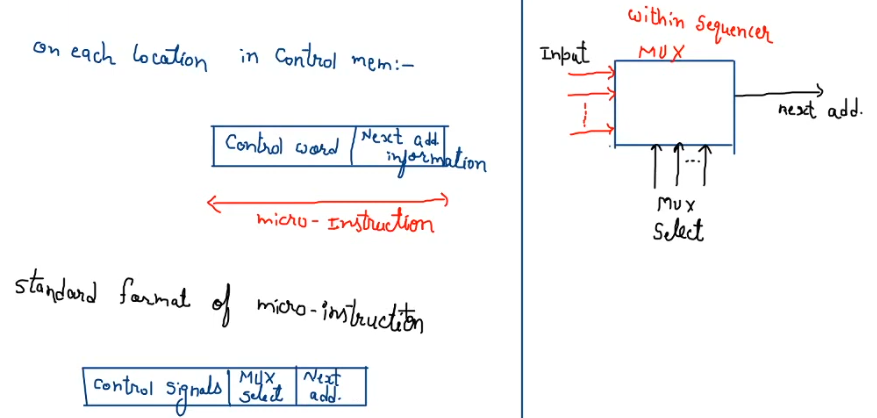 on each location in Control mem:-
Control word
Next add
information
micro-Instruction
standard format of micro-instruction
Control Signals
MUX
select
Next
add.
within Sequencer
MUX
Input
next add.
...
MUX
Select